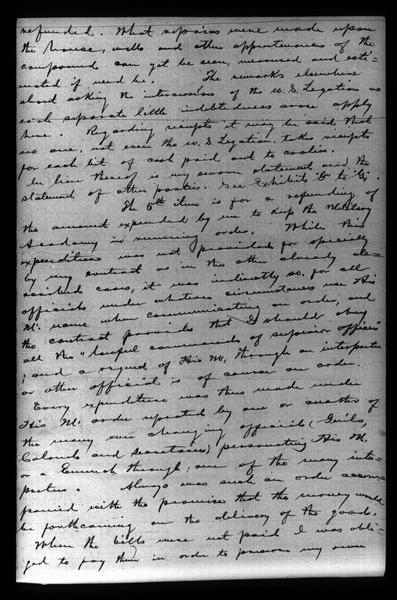 refunded. What repairs were made upon
the house, walls and other appurtenances of the
compound can yet be seen, measured and esti-
mated if need be. The remarks elsewhere
about asking the intercession of the U.S. Legation as
each separate little indebtedness arose apply
here. Regarding receipts it may be said that
no one, not even the U.S. Legation, takes receipts
for each bit of cash paid out to coolies.
In lieu thereof is my sworn statement and the
statement of other parties. See Exhibits "B" to "G".
The 5th item is for a refunding of
the amount expended by me to keep the Military
Academy in running order. While this
expenditure was not provided for specially
by my contract as in the other already de-
scribed cases, it was indirectly so, for all
officials under whatever circumstances use His
M. name when communicating an order, and
the contract provides that I should obey
all the "lawful commands of superior officers"
; and a request of His M. through an interpreter
or other official is of course an order.
Every expenditure was thus made under
His M. order repeated by one or another of
the many ever changing officials (Generals,
Colonels and Secretaries) personating His M.
or a Eunuch through one of the many inter-
preters. Always was such an order accom-
panied with the promise that the money would
be forthcoming on the delivery of the goods.
When the bills were not paid I was obli-
ged to pay them in order to preserve my own